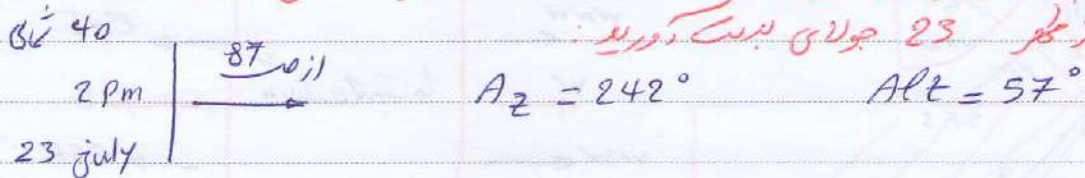 ظهر 23 جولای بدست آورید:
40 شمالی
2 pm
23 july
از ص 87
Az = 242° Alt = 57°